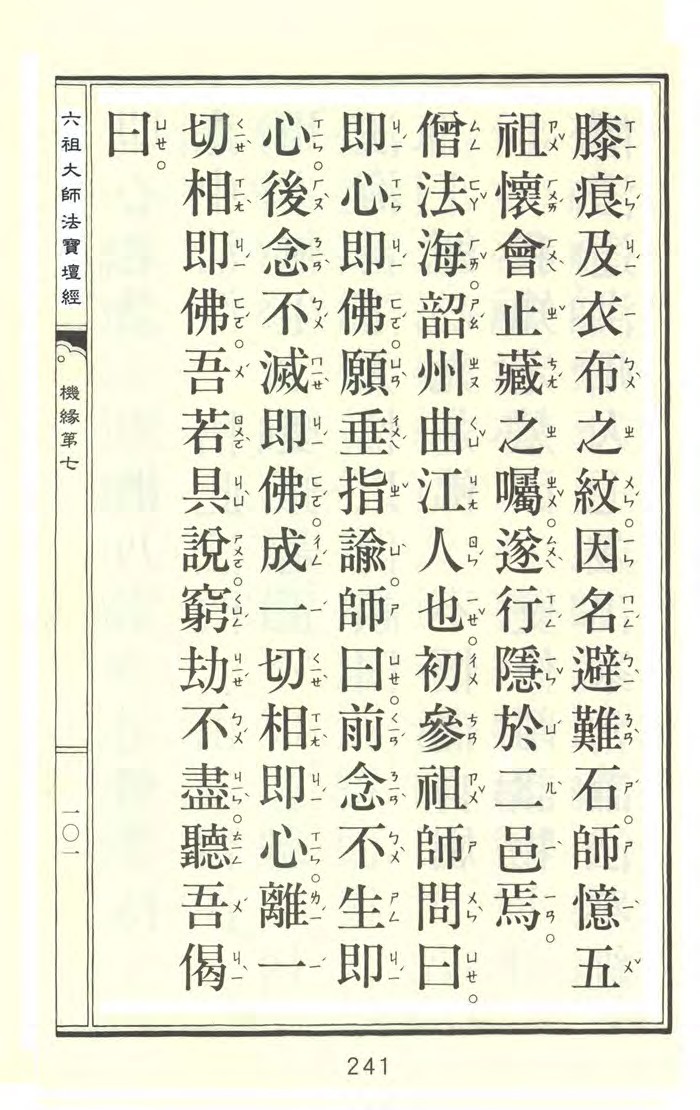 膝痕及衣布之紋。因名避難石。師憶五
祖懷會止藏之囑。遂行隱於二邑焉。
僧法海。韶州曲江人也。初參祖師問曰。
即心即佛。願垂指諭。師曰。前念不生即
心。後念不滅即佛。成一切相即心。離一
切相即佛。吾若具說。窮劫不盡。聽吾偈
曰。
六祖大師法寶壇經
機緣第七
一〇一
241